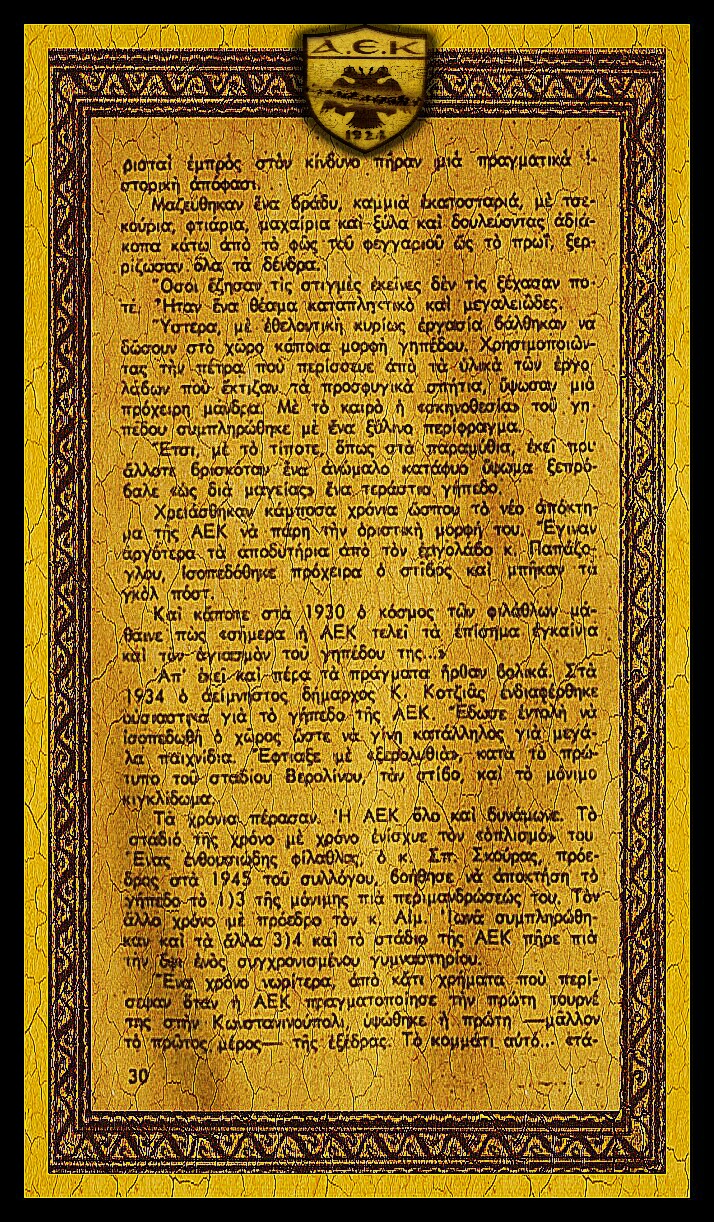 Α.Ε.Κ
1924
ρισταὶ ἐμπρὸς στὸν κίνδυνο πῆραν μιὰ πραγματικὰ ἱ-
στορικὴ ἀπόφασι.
Μαζεύθηκαν ἕνα βράδυ, καμμιὰ ἑκατοσταριά, μὲ τσε-
κούρια, φτιάρια, μαχαίρια καὶ ξύλα καὶ δουλεύοντας ἀδιά-
κοπα κάτω ἀπὸ τὸ φῶς τοῦ φεγγαριοῦ ὣς τὸ πρωΐ, ξερ-
ρίζωσαν ὅλα τὰ δένδρα.
Ὅσοι ἔζησαν τὶς στιγμὲς ἐκεῖνες δὲν τὶς ξέχασαν πο-
τέ. Ἦταν ἕνα θέαμα καταπληκτικὸ καὶ μεγαλειῶδες.
Ὕστερα, μὲ ἐθελοντικὴ κυρίως ἐργασία βάλθηκαν νὰ
δώσουν στὸ χῶρο κάποια μορφὴ γηπέδου. Χρησιμοποιῶν-
τας τὴν πέτρα ποὺ περίσσευε ἀπὸ τὰ ὑλικὰ τῶν ἐργο
λάβων ποὺ ἔκτιζαν τὰ προσφυγικὰ σπήτια, ὕψωσαν μιὰ
πρόχειρη μάνδρα. Μὲ τὸ καιρὸ ἡ «σκηνοθεσία» τοῦ γη
πέδου συμπληρώθηκε μὲ ἕνα ξύλινο περίφραγμα.
Ἔτσι, μὲ τὸ τίποτε, ὅπως στὰ παραμύθια, ἐκεῖ που
ἄλλοτε βρισκόταν ἕνα ἀνώμαλο κατάφυτο ὕψωμα ξεπρό-
βαλε «ὡς διὰ μαγείας» ἕνα τεράστιο γήπεδο.
Χρειάσθηκαν κάμποσα χρόνια ὥσπου τὸ νέο ἀπόκτη-
μα τῆς ΑΕΚ νὰ πάρη τὴν ὁριστικὴ μορφή του. Ἔγιναν
ἀργότερα τὰ ἀποδυτήρια ἀπὸ τὸν ἐργολάβο κ. Παπάζο-
γλου, ἰσοπεδόθηκε πρόχειρα ὁ στίβος καὶ μπῆκαν τὰ
γκὸλ πόστ.
Καὶ κάποτε στὰ 1930 ὁ κόσμος τῶν φιλάθλων μά-
θαινε πὼς «σήμερα ἡ ΑΕΚ τελεῖ τὰ ἐπίσημα ἐγκαίνια
καὶ τὸν ἁγιασμὸν τοῦ γηπέδου της...»
Ἀπ' ἐκεῖ καὶ πέρα τὰ πράγματα ἦρθαν βολικά. Στὰ
1934 ὁ ἀείμνηστος δήμαρχος Κ. Κοτζιᾶς ἐνδιαφέρθηκε
οὐσιαστικὰ γιὰ τὸ γήπεδο τῆς ΑΕΚ. Ἔδωσε ἐντολὴ νὰ
ἰσοπεδωθῆ ὁ χῶρος ὥστε νὰ γίνη κατάλληλος γιὰ μεγά-
λα παιχνίδια. Ἔφτιαξε μὲ «ξερολυθιά», κατὰ τὸ πρω-
τυπο τοῦ σταδίου Βερολίνου, τὸν στίβο, καὶ τὸ μόνιμο
κιγκλίδωμα.
Τὰ χρόνια πέρασαν. Ἡ ΑΕΚ ὅλο καὶ δυνάμωνε. Τὸ
στάδιό τῆς χρόνο μὲ χρόνο ἐνίσχυε τὸν «ὁπλισμό» του
Ἕνας ἐνθουσιώδης φίλαθλος, ὁ κ. Σπ. Σκούρας, πρόε-
δρος στὰ 1945 τοῦ συλλόγου, βοήθησε νὰ ἀποκτήση τὸ
γήπεδο τὸ 1)3 τῆς μόνιμης πιὰ περιμανδρώσεώς του. Τὸν
ἄλλο χρόνο μὲ πρόεδρο τὸν κ. Αἰμ. Ἰωνᾶ συμπληρώθη-
καν καὶ τὰ ἄλλα 3)4 καὶ τὸ στάδιο τῆς ΑΕΚ πῆρε πιὰ
τὴν ὄψι ἑνὸς συγχρονισμένου γυμναστηρίου.
Ἕνα χρόνο νωρίτερα, ἀπὸ κάτι χρήματα ποὺ περί-
σεψαν ὅταν ἡ ΑΕΚ πραγματοποίησε τὴν πρώτη τουρνέ
της στὴν Κωνσταντινούπολι, ὑψώθηκε ἡ πρώτη —μᾶλλον
τὸ πρῶτος μέρος— τῆς ἐξέδρας. Τὸ κομμάτι αὐτό... στά-
30